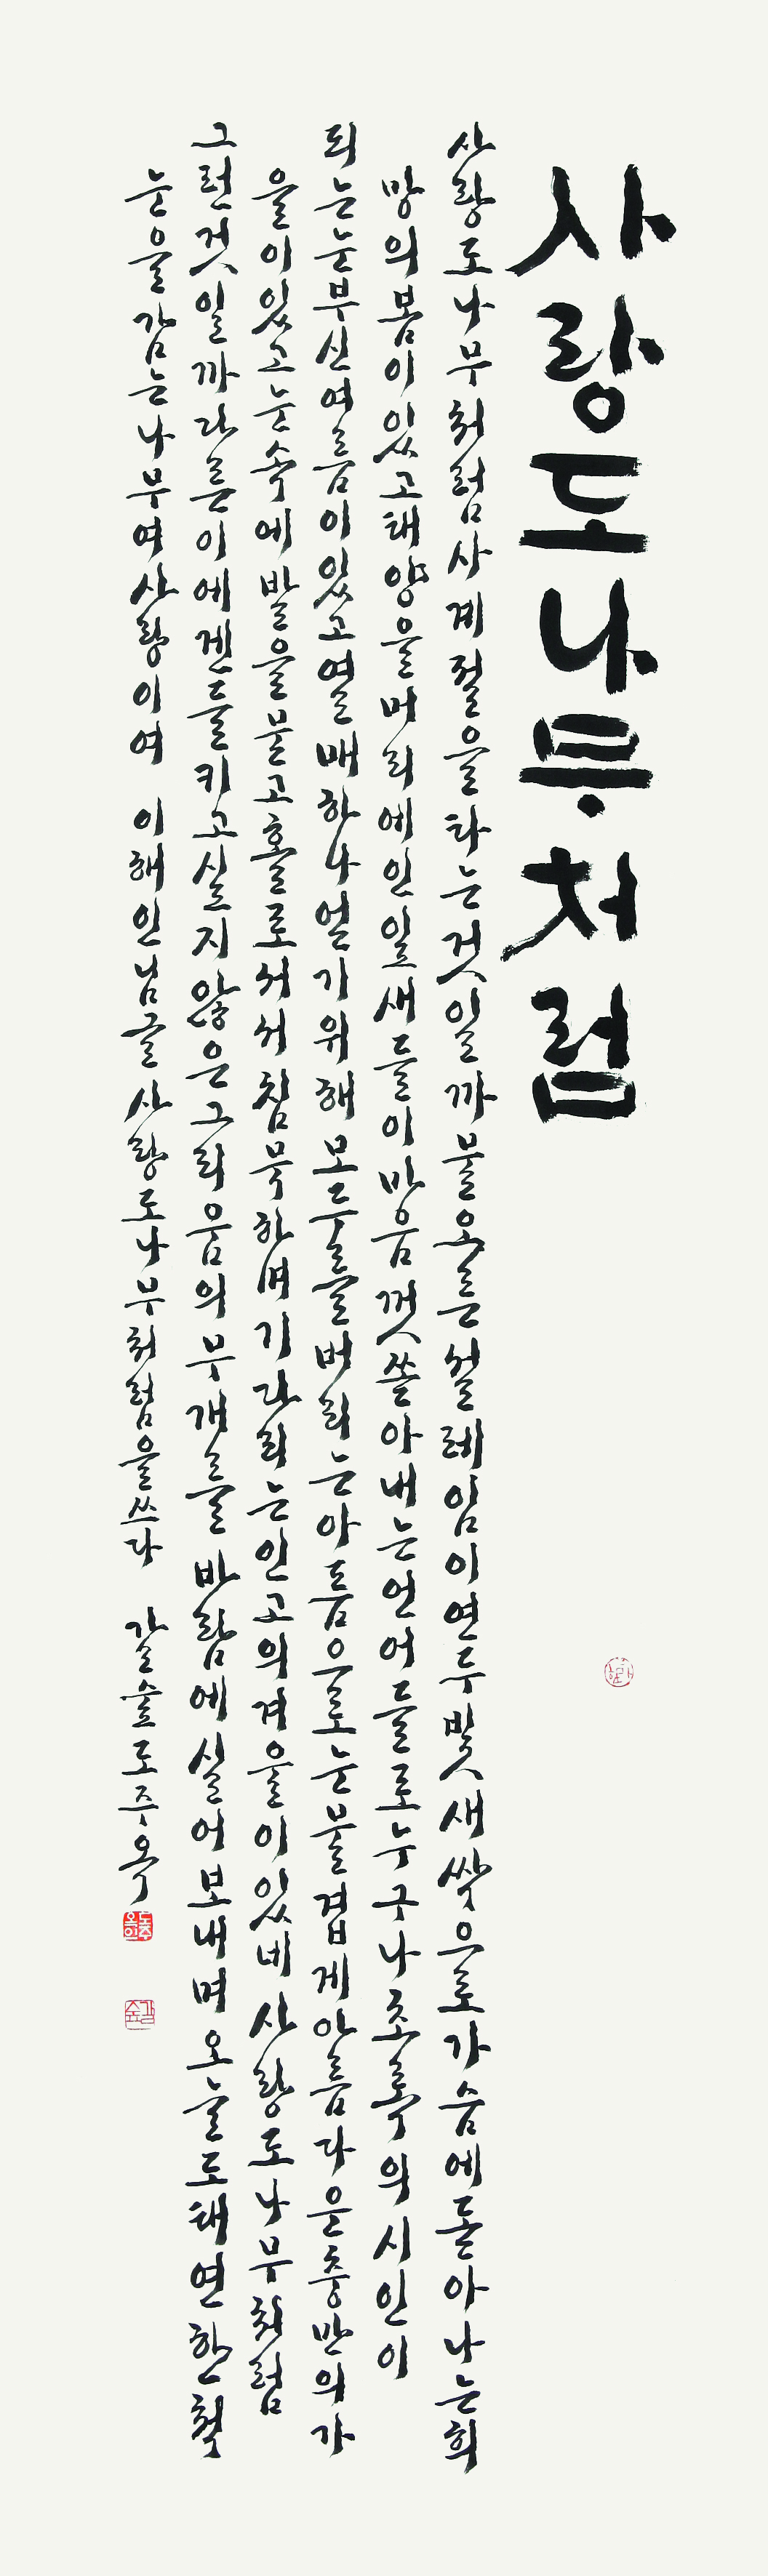 사랑도나무처럼
사랑도나무처럼사계절을타는것일까물오른설레임이연두빛새싹으로가슴에돋아나는희
망의봄이있고태양을머리에인잎새들이마음껏쏟아내는언어들로누구나초록의시인이
되는눈부신여름이있고열매하나얻기위해모두를버리는아픔으로눈물겹게아름다운충만의가
을이있고눈속에발을묻고홀로서서침묵하며기다리는인고의겨울이있네사랑도나무처럼
그런것일까다른이에겐들키고싶지않은그리움의무게를바람에실어보내며오늘도태연한척
눈을감는나무여사랑이여 이해인님글사랑도나무처럼을쓰다 갈숲도주옥